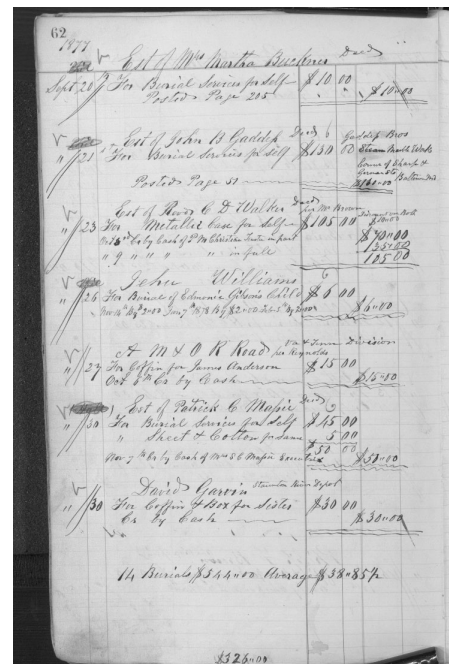 62
1877
Est of Mrs Martha Buckner Decd
Sept 20 For Burial Services for Self $10 00
Posted Page 205 $10.00
Est of John B Gaddess Decd Gaddess Bros
" 21 For Burial Services for Self $130 00 Steam Marble Works
Corner of Sharp &
Posted Page 51 Baltimore Md
Est of Revd C D Walker Decd per Mr Brown
" 23 For Metallic Case for Self $105 00
Cr by Cash of in part $70.00
" 9 " " " " in full 35.00
105.00
John Williams
" 26 For Burial of Edmonia Gibson's Child $6 00
Nov 14th By $2.00 Jany 7th 1878 By $2.00 Feb 5th By 2.00 $6.00
A M & O R Road Va & Tenn Division
per Reynolds
" 27 For Coffin for James Anderson $15 00
Oct Cr by Cash $15.00
Est of Patrick C Massie Decd
" 30 For Burial Services for Self $45 00
" Sheet & Cotton for Same 5 00
$50 00
Nov 7th Cr by Cash of Mrs S C Massie Executrix $50.00
David Garvin Staunton River Depot
" 30 For Coffin & Box for Sister $30 00
Cr by Cash $30.00
14 Burials $544.00 Average $38.85½
$326.00